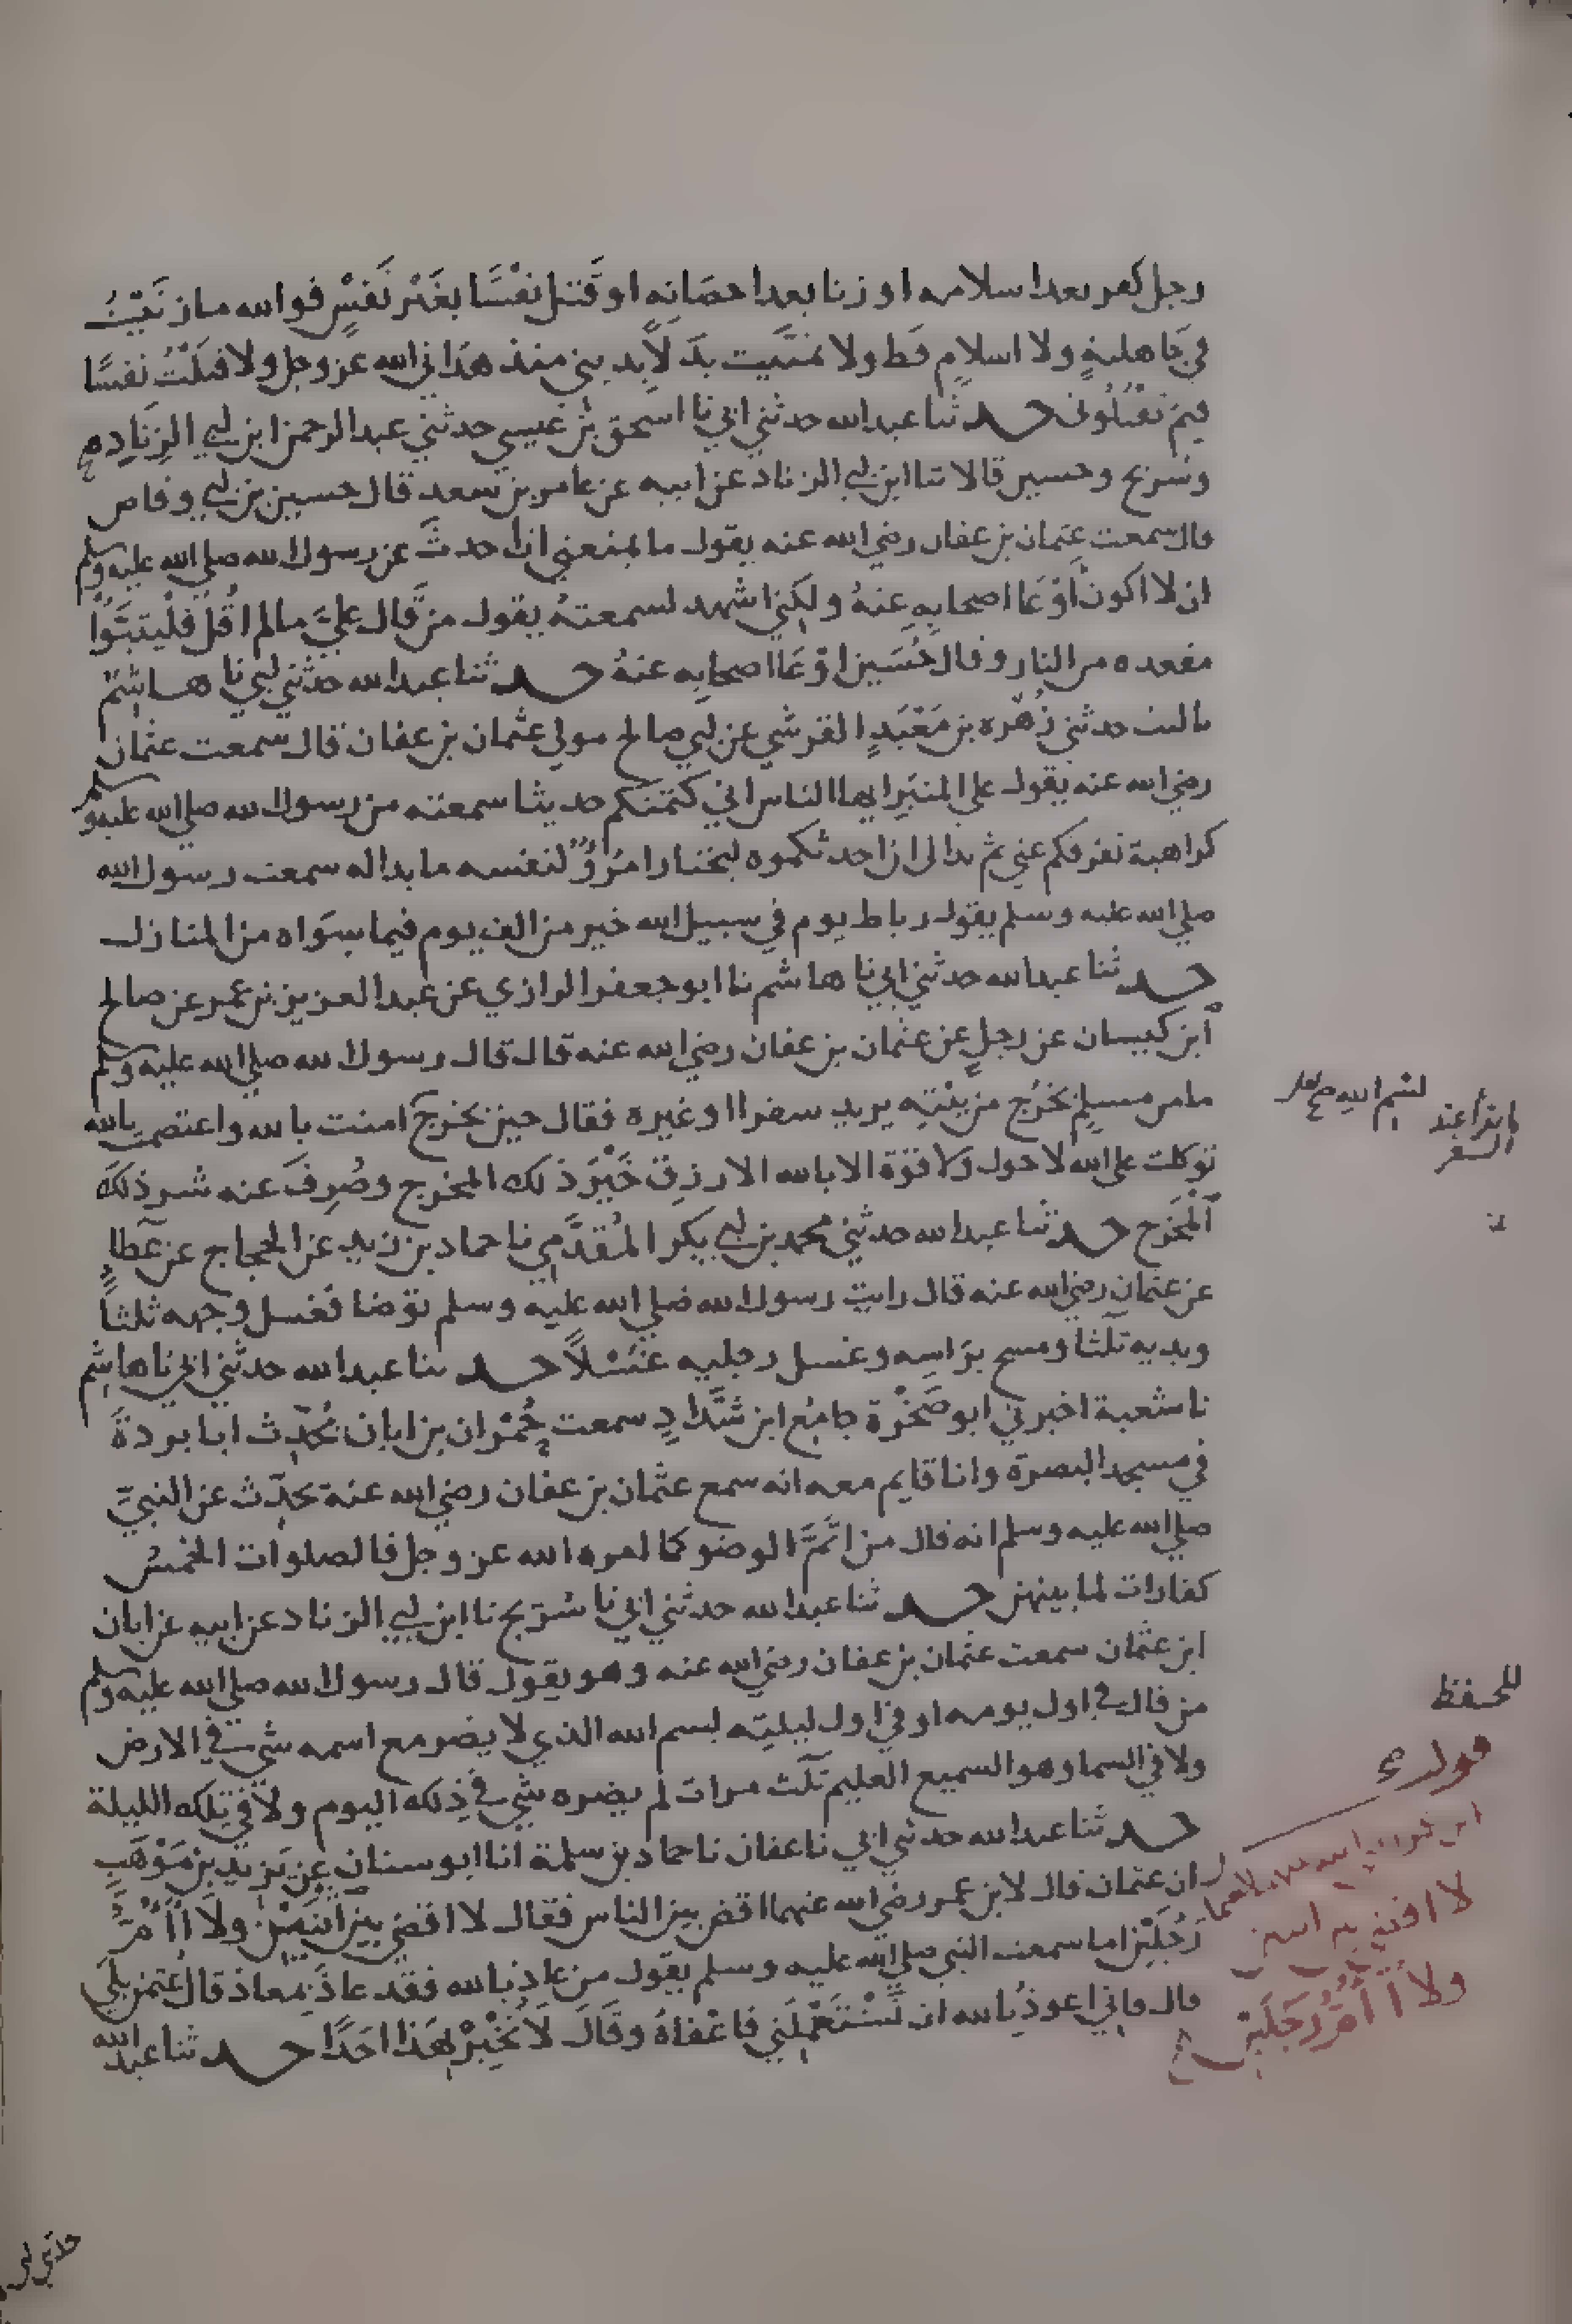 رجل كفر بعد اسلامه او زنا بعد احصانه او قتل نفسا بغير نفس فوالله ما زنيت
في جاهلية ولا اسلام قط ولا تمنيت بدلا بديني منذ هداني الله عز وجل ولا قتلت نفسا
فيم تقتلوني حدثنا عبدالله حدثني ابي نا اسحق بن عيسى حدثني عبد الرحمن ابن ابي الزناد ح
وسريج وحسين قالا ثنا ابن ابي الزناد عن ابيه عن عامر بن سعد قال حسين بن ابي وقاص
قال سمعت عثمان بن عفان رضي الله عنه يقول ما يمنعني ان احدث عن رسول الله صلى الله عليه وسلم
ان لا اكون اوعا اصحابه عنه ولكني اشهد لسمعته يقول من قال علي ما لم اقل فليتبوا
مقعده من النار وقال حسين اوعا اصحابه عنه حدثنا عبدالله حدثني ابي نا هاشم
نا ليث حدثني زهره بن معبد القرشي عن ابي صالح مولى عثمان بن عفان قال سمعت عثمان
رضي الله عنه يقول على المنبر ايها الناس اني كتمتكم حديثا سمعته من رسول الله صلى الله عليه وسلم
كراهية تفرقكم عني ثم بدا لي ان احدثكموه ليختار امرؤ لنفسه ما بدا له سمعت رسول الله
صلى الله عليه وسلم يقول رباط يوم في سبيل الله خير من الف يوم فيما سواه من المنازل
حدثنا عبدالله حدثني ابي نا هاشم نا ابو جعفر الرازي عن عبد العزيز بن عمر عن صالح
ابن كيسان عن رجل عن عثمان بن عفان رضي الله عنه قال قال رسول الله صلى الله عليه وسلم
ما من مسلم يخرج من بيته يريد سفرا او غيره فقال حين يخرج امنت بالله واعتصمت بالله
توكلت على الله لا حول ولا قوة الا بالله الا رزق خير ذلك المخرج وصرف عنه شر ذلك
المخرج حدثنا عبدالله حدثني محمد بن ابي بكر المقدمي نا حماد بن زيد عن الحجاج عن عطا
عن عثمان رضي الله عنه قال رايت رسول الله صلى الله عليه وسلم توضا فغسل وجهه ثلثا
ويديه ثلثا ومسح براسه وغسل رجليه غسلا حدثنا عبدالله حدثني ابي نا هاشم
نا شعبة اخبرني ابو صخرة جامع ابن شداد سمعت حمران بن ابان يحدث ابا بردة
في مسجد البصرة وانا قايم معه انه سمع عثمان بن عفان رضي الله عنه يحدث عن النبي
صلى الله عليه وسلم انه قال من اتم الوضو كما امره الله عز وجل فالصلوات الخمس
كفارات لما بينهن حدثنا عبدالله حدثني ابي نا سريج نا ابن ابي الزناد عن ابيه عن ابان
ابن عثمان سمعت عثمان بن عفان رضي الله عنه وهو يقول قال رسول الله صلى الله عليه وسلم
من قال في اول يومه او في اول ليلته بسم الله الذي لا يضر مع اسمه شي في الارض
ولا في السما وهو السميع العليم ثلث مرات لم يضره شي في ذلك اليوم ولا في تلك الليلة
حدثنا عبدالله حدثني ابي نا عفان نا حماد بن سلمة انا ابو سنان عن يزيد بن موهب
ان عثمان قال لابن عمر رضي الله عنهما اقض بين الناس فقال لا اقضي بين اثنين ولا أأم
رجلين اما سمعت النبي صلى الله عليه وسلم يقول من عاذ بالله فقد عاذ بمعاذ قال عثمن بلى
قال فاني اعوذ بالله ان تستعملني فاعفاه وقال لا تخبر بهذا احدا حدثنا عبد الله
ما يقرأ عند
السفر
للحفظ
لا اقضي بين اثنين
ولا أأم رجلين
حدثني ابي